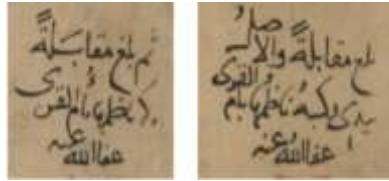 بلغ مقابلةً والاصل
بيدي وكتبه ناظمها بام القرى
عفا الله عنه
ثم بلغ مقابلةً
ناظمها بام القرى
عفا الله عنه